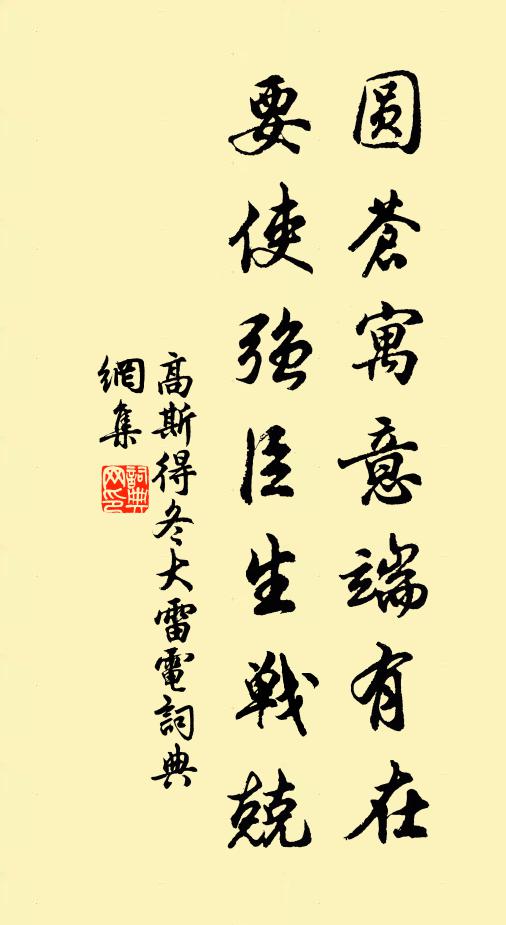 圆蒼寓意端有在
要使強臣生戰兢
高斯得冬大雷電詞典
網集
詞典网印